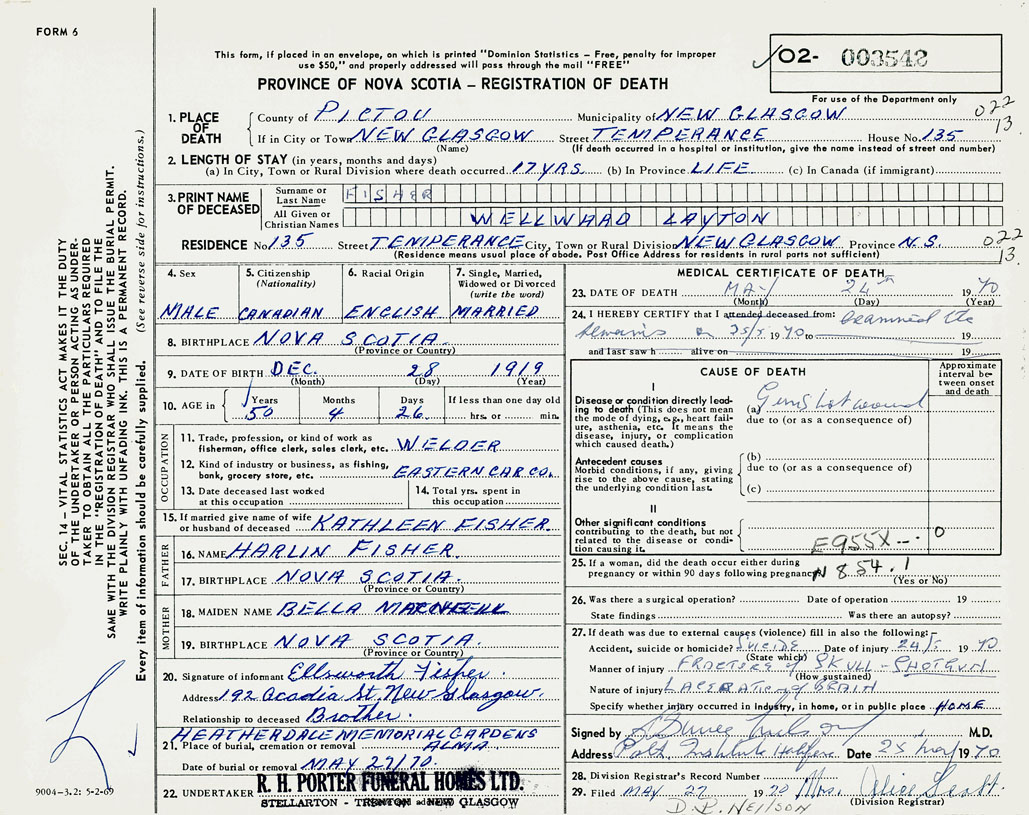 FORM 6
This form, if placed in an envelope, on which is printed "Dominion Statistics – Free, penalty for improper
use $50," and properly addressed will pass through the mail "FREE"
PROVINCE OF NOVA SCOTIA – REGISTRATION OF DEATH
O2- 003542
For use of the Department only
022
13
1. PLACE OF DEATH
County of PICTOU Municipality of NEW GLASGOW
If in City or Town NEW GLASGOW Street TEMPERANCE House No. 135
(Name) (If death occurred in a hospital or institution, give the name instead of street and number)
2. LENGTH OF STAY (in years, months and days)
(a) In City, Town or Rural Division where death occurred 17 YRS. (b) In Province LIFE (c) In Canada (if immigrant)
3. PRINT NAME OF DECEASED
Surname or Last Name FISHER
All Given or Christian Names WELLWARD LAYTON
RESIDENCE No. 135 Street TEMPERANCE City, Town or Rural Division NEW GLASGOW Province N.S.
(Residence means usual place of abode. Post Office Address for residents in rural parts not sufficient)
022
13.
4. Sex
MALE
5. Citizenship
(Nationality)
CANADIAN
6. Racial Origin
ENGLISH
7. Single, Married,
Widowed or Divorced
(write the word)
MARRIED
8. BIRTHPLACE NOVA SCOTIA
(Province or Country)
9. DATE OF BIRTH DEC. 28 1919
(Month) (Day) (Year)
10. AGE in
Years Months Days If less than one day old
50 4 26 hrs. or min.
OCCUPATION
11. Trade, profession, or kind of work as
fisherman, office clerk, sales clerk, etc. WELDER
12. Kind of industry or business, as fishing,
bank, grocery store, etc. EASTERN CAR CO.
13. Date deceased last worked
at this occupation
14. Total yrs. spent in
this occupation
15. If married give name of wife
or husband of deceased KATHLEEN FISHER
FATHER
16. NAME HARLIN FISHER.
17. BIRTHPLACE NOVA SCOTIA.
(Province or Country)
MOTHER
18. MAIDEN NAME BELLA
19. BIRTHPLACE NOVA SCOTIA.
(Province or Country)
20. Signature of informant Ellsworth Fisher.
Address 192 Acadia St. New Glasgow
Relationship to deceased Brother.
HEATHERDALE MEMORIAL GARDENS
21. Place of burial, cremation or removal ALMA.
Date of burial or removal MAY 27/70.
22. UNDERTAKER R. H. PORTER FUNERAL HOMES LTD.
STELLARTON - TRENTON and NEW GLASGOW
MEDICAL CERTIFICATE OF DEATH
23. DATE OF DEATH MAY 24th 1970
(Month) (Day) (Year)
24. I HEREBY CERTIFY that I attended deceased from: examined the
remains on 25/5 1970 to 19
and last saw h alive on 19
CAUSE OF DEATH
Approximate
interval be-
tween onset
and death
I
Disease or condition directly lead-
ing to death (This does not mean
the mode of dying, e.g., heart fail-
ure, asthenia, etc. It means the
disease, injury, or complication
which caused death.)
(a) Gunshot wound
due to (or as a consequence of)
Antecedent causes
Morbid conditions, if any, giving
rise to the above cause, stating
the underlying condition last.
(b)
due to (or as a consequence of)
(c)
II
Other significant conditions
contributing to the death, but not
related to the disease or condi-
tion causing it.
E955X 0
25. If a woman, did the death occur either during
pregnancy or within 90 days following pregnancy N 854.1
(Yes or No)
26. Was there a surgical operation? Date of operation 19
State findings Was there an autopsy?
27. If death was due to external causes (violence) fill in also the following:
Accident, suicide or homicide? SUICIDE Date of injury 24/5 1970
(State which)
Manner of injury FRACTURE of SKULL - SHOTGUN
(How sustained)
Nature of injury LACERATION of BRAIN
Specify whether injury occurred in industry, in home, or in public place HOME
Signed by M.D.
Address Path. Institute Halifax Date 25 May 1970
28. Division Registrar's Record Number
29. Filed MAY 27 1970 Mrs. Alice Scott
(Division Registrar)
D. R. NEILSON
SEC. 14 – VITAL STATISTICS ACT MAKES IT THE DUTY
OF THE UNDERTAKER OR PERSON ACTING AS UNDER-
TAKER TO OBTAIN ALL THE PARTICULARS REQUIRED
IN THE "REGISTRATION OF DEATH" AND TO FILE THE
SAME WITH THE DIVISION REGISTRAR WHO SHALL ISSUE THE BURIAL PERMIT.
WRITE PLAINLY WITH UNFADING INK. THIS IS A PERMANENT RECORD.
Every item of information should be carefully supplied. (See reverse side for instructions.)
9004-3.2: 5-2-69